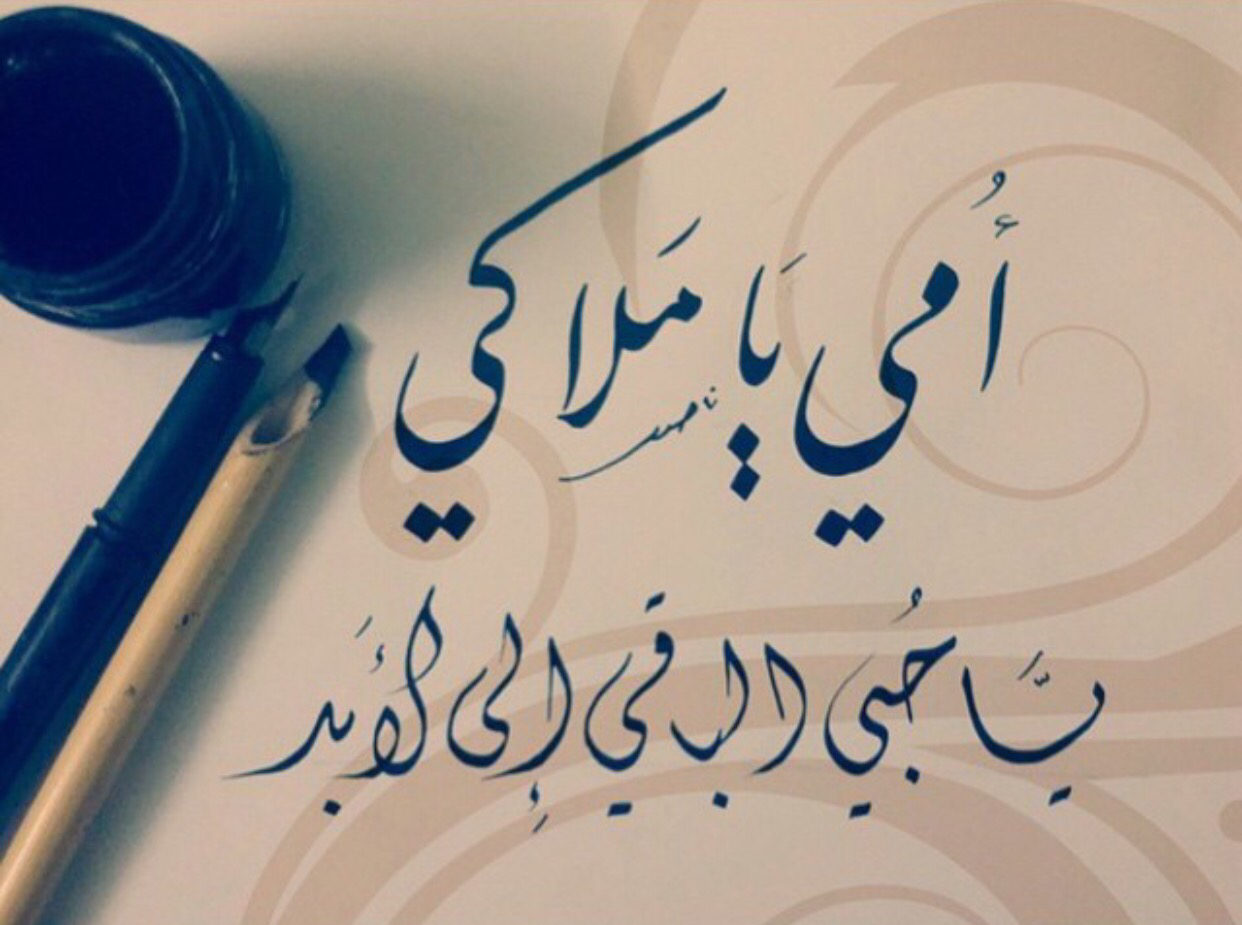 أُمي يَا مَلاكي
يَّا حُبي الباقي إِلى الأَبد